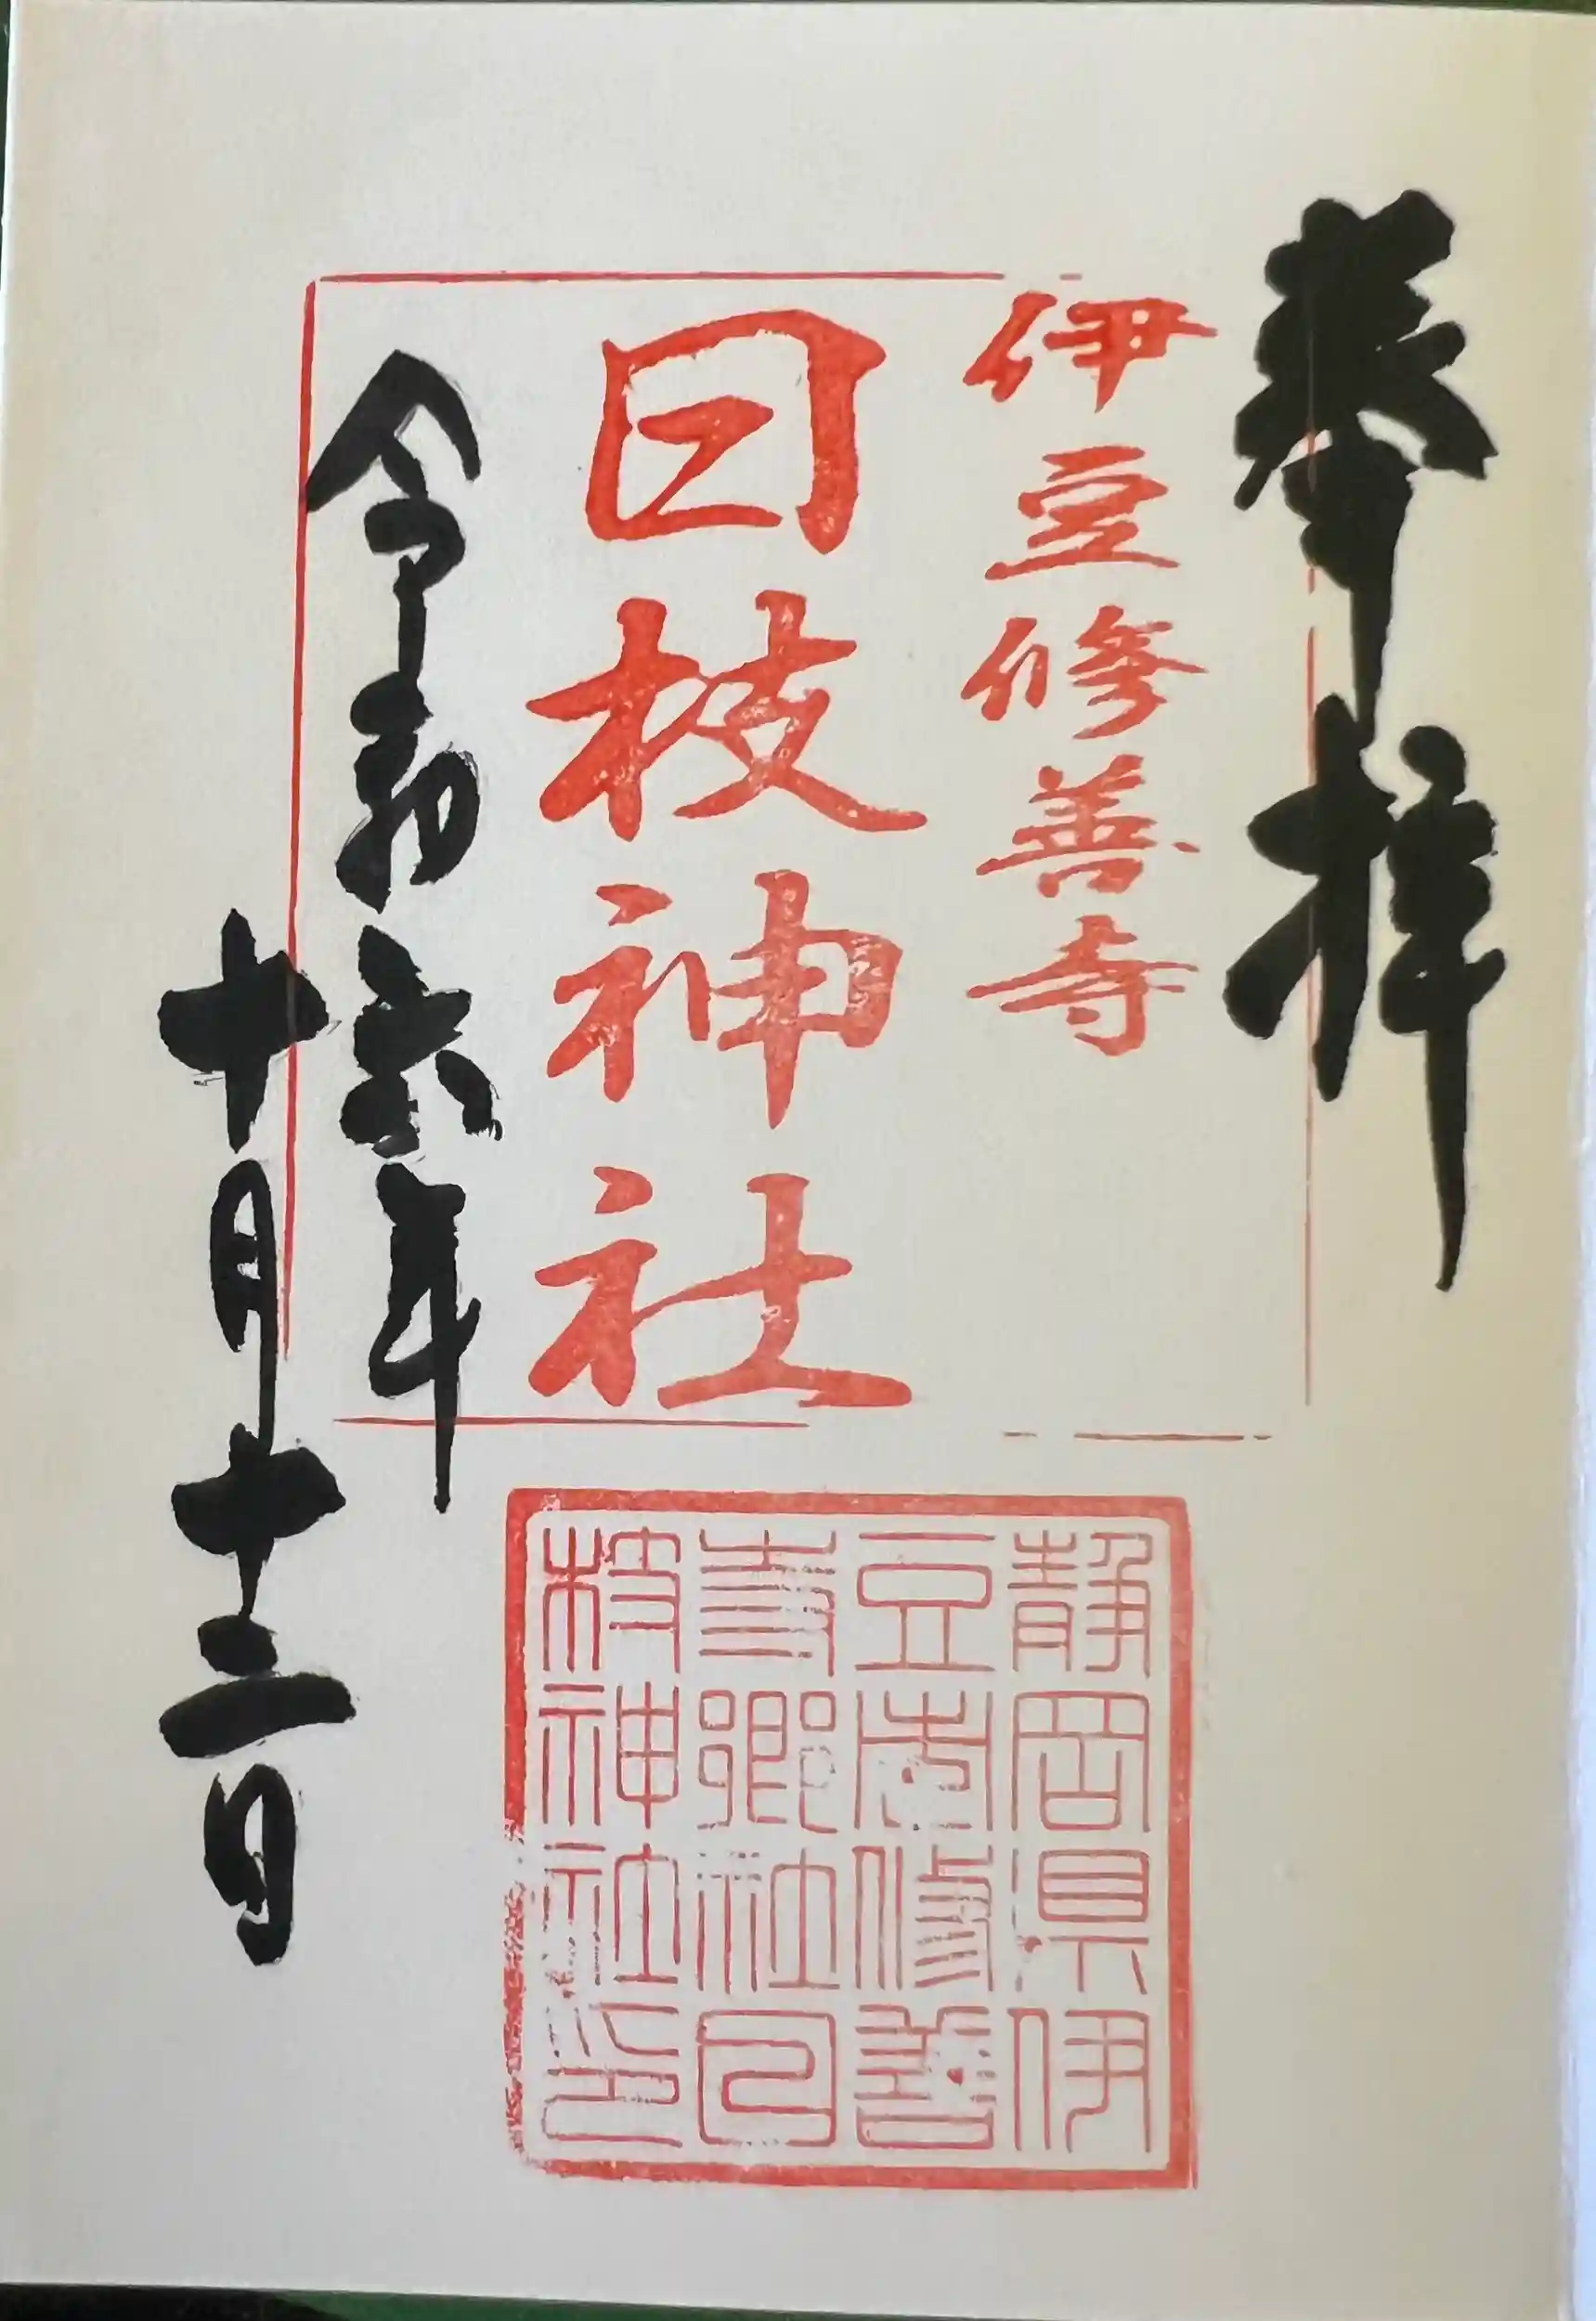 奉拝
伊豆修善寺
日枝神社
令和六年
十月十二日
静岡県伊
豆市修善
寺郷社日
枝神社印